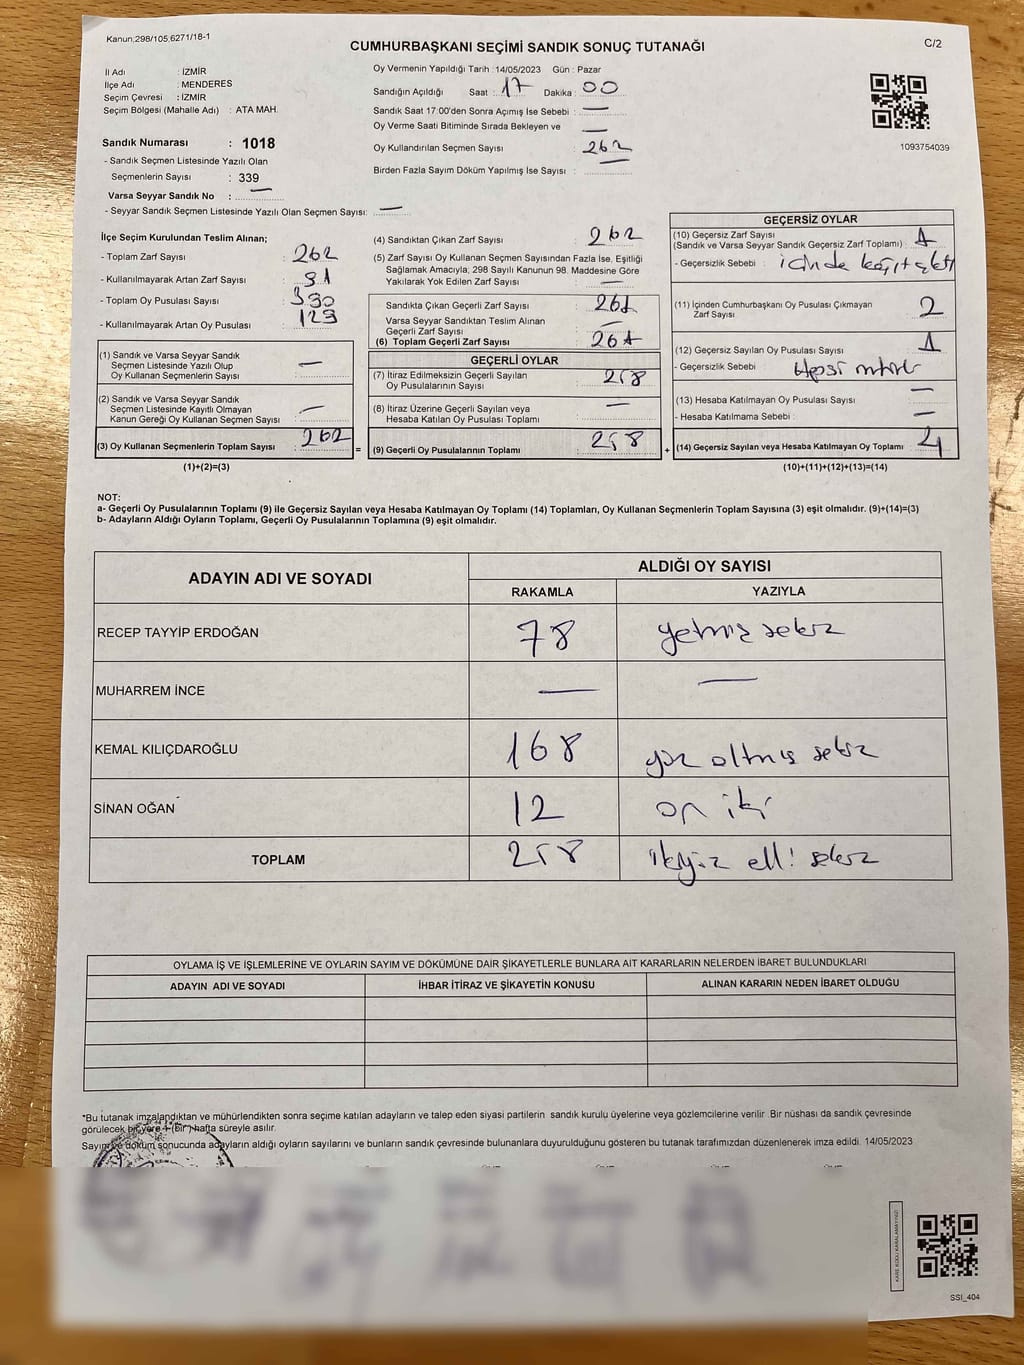 Kanun;298/105,6271/18-1
CUMHURBAŞKANI SEÇİMİ SANDIK SONUÇ TUTANAĞI
C/2
İl Adı : İZMİR
İlçe Adı : MENDERES
Seçim Çevresi : İZMİR
Seçim Bölgesi (Mahalle Adı) : ATA MAH.
Sandık Numarası : 1018
- Sandık Seçmen Listesinde Yazılı Olan
Seçmenlerin Sayısı : 339
Varsa Seyyar Sandık No : —
- Seyyar Sandık Seçmen Listesinde Yazılı Olan Seçmen Sayısı: —
Oy Vermenin Yapıldığı Tarih : 14/05/2023 Gün : Pazar
Sandığın Açıldığı Saat : 17 Dakika : 00
Sandık Saat 17:00'den Sonra Açımış İse Sebebi : —
Oy Verme Saati Bitiminde Sırada Bekleyen ve —
Oy Kullandırılan Seçmen Sayısı : 262
Birden Fazla Sayım Döküm Yapılmış İse Sayısı : —
1093754039
İlçe Seçim Kurulundan Teslim Alınan;
- Toplam Zarf Sayısı : 262
- Kullanılmayarak Artan Zarf Sayısı :
- Toplam Oy Pusulası Sayısı :
- Kullanılmayarak Artan Oy Pusulası :
(1) Sandık ve Varsa Seyyar Sandık
Seçmen Listesinde Yazılı Olup
Oy Kullanan Seçmenlerin Sayısı : —
(2) Sandık ve Varsa Seyyar Sandık
Seçmen Listesinde Kayıtlı Olmayan
Kanun Gereği Oy Kullanan Seçmen Sayısı : —
(3) Oy Kullanan Seçmenlerin Toplam Sayısı : 262
(1)+(2)=(3)
=
(4) Sandıktan Çıkan Zarf Sayısı : 262
(5) Zarf Sayısı Oy Kullanan Seçmen Sayısından Fazla İse, Eşitliği
Sağlamak Amacıyla; 298 Sayılı Kanunun 98. Maddesine Göre
Yakılarak Yok Edilen Zarf Sayısı : —
Sandıkta Çıkan Geçerli Zarf Sayısı : 261
Varsa Seyyar Sandıktan Teslim Alınan
Geçerli Zarf Sayısı : —
(6) Toplam Geçerli Zarf Sayısı : 261
GEÇERLİ OYLAR
(7) İtiraz Edilmeksizin Geçerli Sayılan
Oy Pusulalarının Sayısı : 258
(8) İtiraz Üzerine Geçerli Sayılan veya
Hesaba Katılan Oy Pusulası Toplamı : —
(9) Geçerli Oy Pusulalarının Toplamı : 258
+
GEÇERSİZ OYLAR
(10) Geçersiz Zarf Sayısı
(Sandık ve Varsa Seyyar Sandık Geçersiz Zarf Toplamı) : 1
- Geçersizlik Sebebi : içinde kağıt çıktı
(11) İçinden Cumhurbaşkanı Oy Pusulası Çıkmayan
Zarf Sayısı : 2
(12) Geçersiz Sayılan Oy Pusulası Sayısı : 1
- Geçersizlik Sebebi : Hepsi mühürlü
(13) Hesaba Katılmayan Oy Pusulası Sayısı : —
- Hesaba Katılmama Sebebi : —
(14) Geçersiz Sayılan veya Hesaba Katılmayan Oy Toplamı : 4
(10)+(11)+(12)+(13)=(14)
NOT:
a- Geçerli Oy Pusulalarının Toplamı (9) ile Geçersiz Sayılan veya Hesaba Katılmayan Oy Toplamı (14) Toplamları, Oy Kullanan Seçmenlerin Toplam Sayısına (3) eşit olmalıdır. (9)+(14)=(3)
b- Adayların Aldığı Oyların Toplamı, Geçerli Oy Pusulalarının Toplamına (9) eşit olmalıdır.
ADAYIN ADI VE SOYADI
ALDIĞI OY SAYISI
RAKAMLA YAZIYLA
RECEP TAYYİP ERDOĞAN 78 yetmiş sekiz
MUHARREM İNCE — —
KEMAL KILIÇDAROĞLU 168 yüz altmış sekiz
SİNAN OĞAN 12 on iki
TOPLAM 258 ikiyüz elli sekiz
OYLAMA İŞ VE İŞLEMLERİNE VE OYLARIN SAYIM VE DÖKÜMÜNE DAİR ŞİKAYETLERLE BUNLARA AİT KARARLARIN NELERDEN İBARET BULUNDUKLARI
ADAYIN ADI VE SOYADI İHBAR İTİRAZ VE ŞİKAYETİN KONUSU ALINAN KARARIN NEDEN İBARET OLDUĞU
*Bu tutanak imzalandıktan ve mühürlendikten sonra seçime katılan adayların ve talep eden siyasi partilerin sandık kurulu üyelerine veya gözlemcilerine verilir. Bir nüshası da sandık çevresinde
görülecek bir yere 1 (bir) hafta süreyle asılır.
Sayım ve döküm sonucunda adayların aldığı oyların sayılarını ve bunların sandık çevresinde bulunanlara duyurulduğunu gösteren bu tutanak tarafımızdan düzenlenerek imza edildi. 14/05/2023
KARE KODU KARALAMAYINIZ!
SSI_404